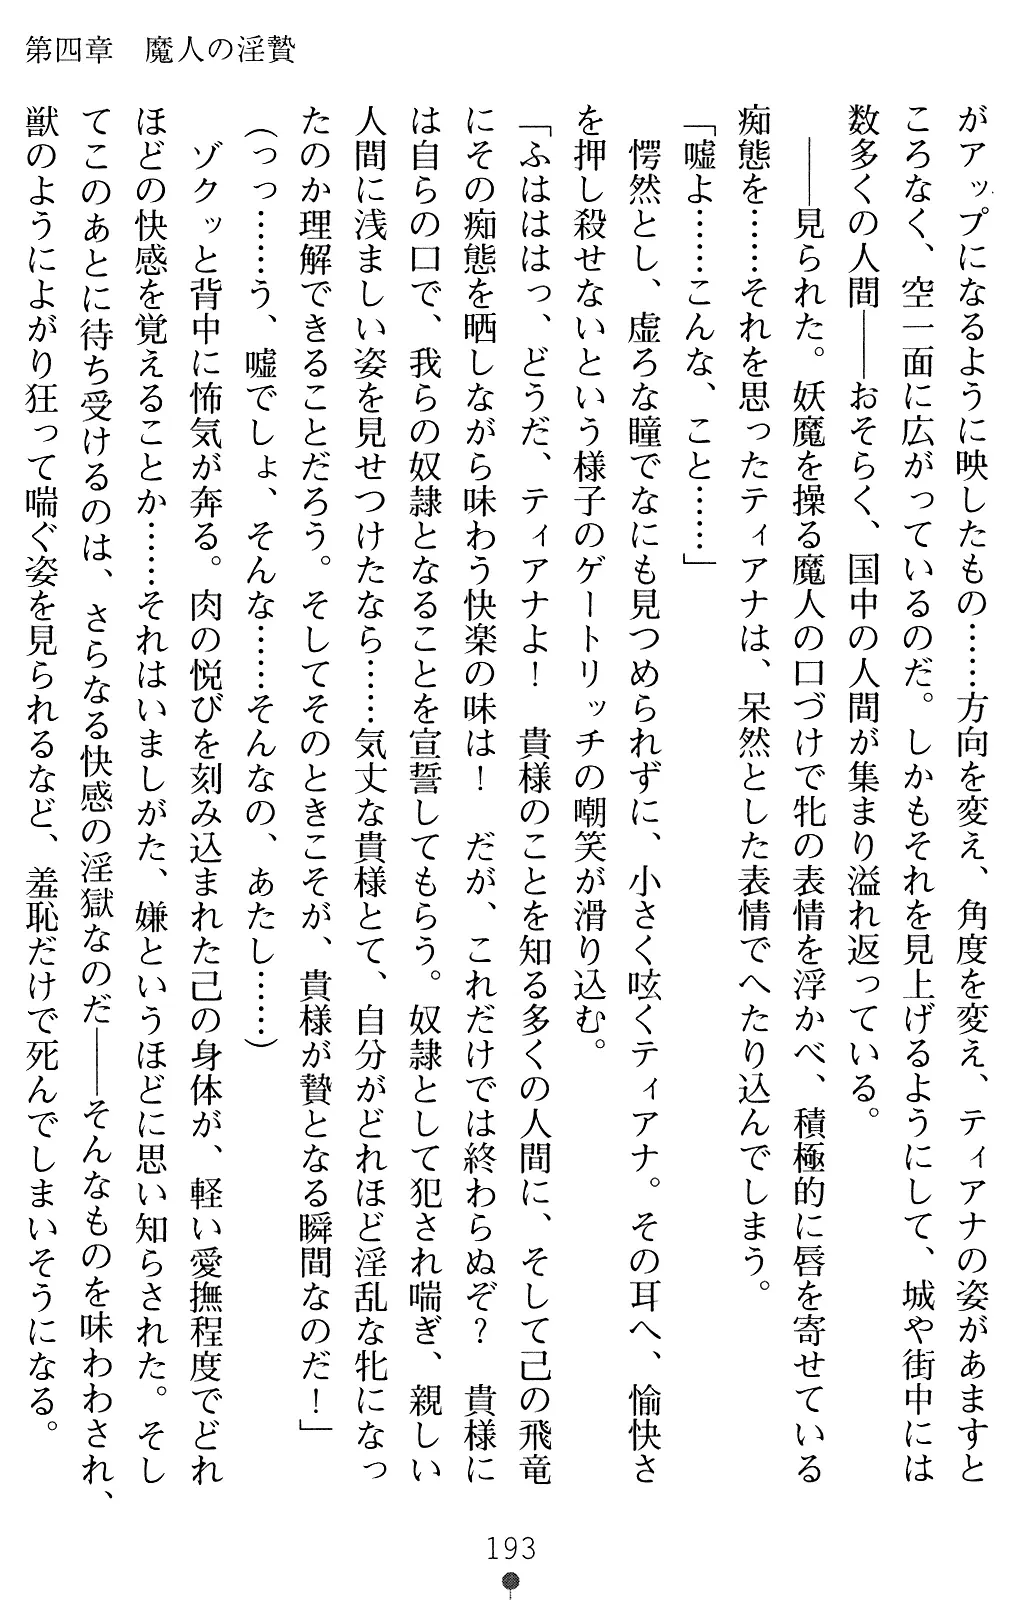 第四章　魔人の淫贄
がアップになるように映したもの……方向を変え、角度を変え、ティアナの姿があますと
ころなく、空一面に広がっているのだ。しかもそれを見上げるようにして、城や街中には
数多くの人間――おそらく、国中の人間が集まり溢れ返っている。
　――見られた。妖魔を操る魔人の口づけで牝の表情を浮かべ、積極的に唇を寄せている
痴態を……それを思ったティアナは、呆然とした表情でへたり込んでしまう。
「嘘よ……こんな、こと……」
　愕然とし、虚ろな瞳でなにも見つめられずに、小さく呟くティアナ。その耳へ、愉快さ
を押し殺せないという様子のゲートリッチの嘲笑が滑り込む。
「ふはははっ、どうだ、ティアナよ！　貴様のことを知る多くの人間に、そして己の飛竜
にその痴態を晒しながら味わう快楽の味は！　だが、これだけでは終わらぬぞ？　貴様に
は自らの口で、我らの奴隷となることを宣誓してもらう。奴隷として犯され喘ぎ、親しい
人間に浅ましい姿を見せつけたなら……気丈な貴様とて、自分がどれほど淫乱な牝になっ
たのか理解できることだろう。そしてそのときこそが、貴様が贄となる瞬間なのだ！」
（っっ……う、嘘でしょ、そんな……そんなの、あたし……）
　ゾクッと背中に怖気が奔る。肉の悦びを刻み込まれた己の身体が、軽い愛撫程度でどれ
ほどの快感を覚えることか……それはいましがた、嫌というほどに思い知らされた。そし
てこのあとに待ち受けるのは、さらなる快感の淫獄なのだ――そんなものを味わわされ、
獣のようによがり狂って喘ぐ姿を見られるなど、羞恥だけで死んでしまいそうになる。
193